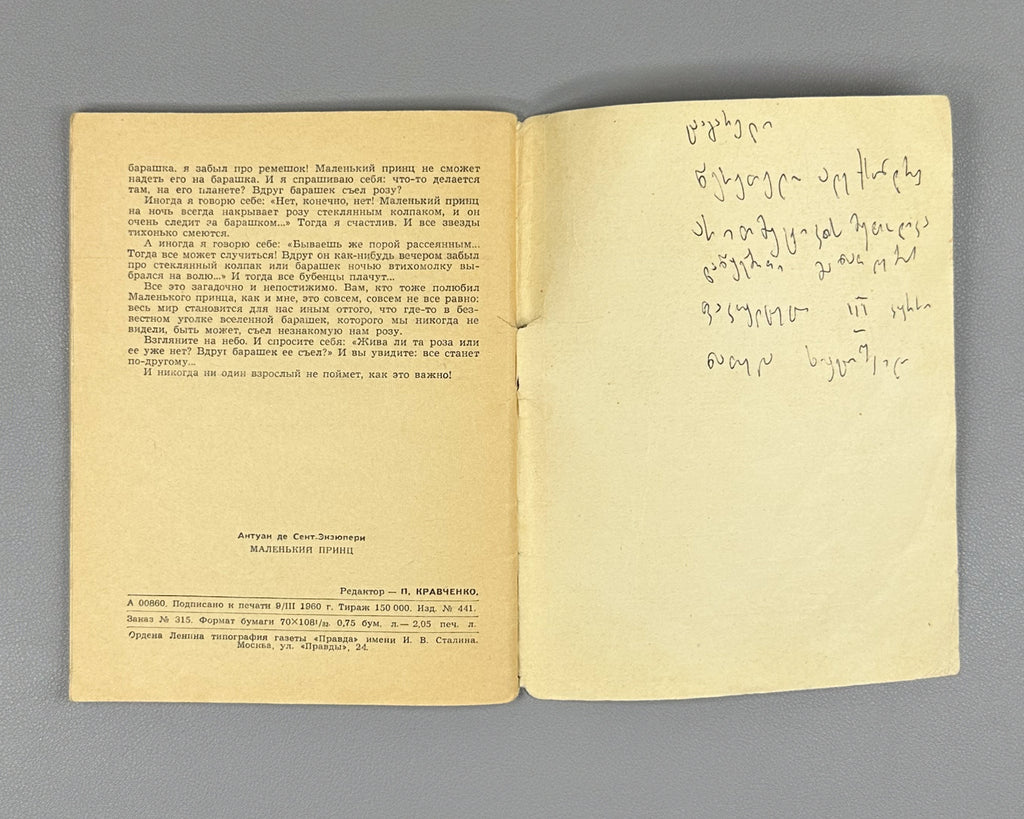 барашка, я забыл про ремешок! Маленький принц не сможет
надеть его на барашка. И я спрашиваю себя: что-то делается
там, на его планете? Вдруг барашек съел розу?
Иногда я говорю себе: «Нет, конечно, нет! Маленький принц
на ночь всегда накрывает розу стеклянным колпаком, и он
очень следит за барашком...» Тогда я счастлив. И все звезды
тихонько смеются.
А иногда я говорю себе: «Бываешь же порой рассеянным...
Тогда все может случиться! Вдруг он как-нибудь вечером забыл
про стеклянный колпак или барашек ночью втихомолку вы-
брался на волю...» И тогда все бубенцы плачут...
Все это загадочно и непостижимо. Вам, кто тоже полюбил
Маленького принца, как и мне, это совсем, совсем не все равно:
весь мир становится для нас иным оттого, что где-то в без-
вестном уголке вселенной барашек, которого мы никогда не
видели, быть может, съел незнакомую нам розу.
Взгляните на небо. И спросите себя: «Жива ли та роза или
ее уже нет? Вдруг барашек ее съел?» И вы увидите: все станет
по-другому...
И никогда ни один взрослый не поймет, как это важно!
Антуан де Сент-Экзюпери
МАЛЕНЬКИЙ ПРИНЦ
Редактор — П. КРАВЧЕНКО.
А 00860. Подписано к печати 9/III 1960 г. Тираж 150 000. Изд. № 441.
Заказ № 315. Формат бумаги 70×108¹/₃₂. 0,75 бум. л. — 2,05 печ. л.
Ордена Ленина типография газеты «Правда» имени И. В. Сталина.
Москва, ул. «Правды», 24.
წერეთელი ალექსანდრე
არითმეტიკის მეთოდიკა
დაწყებითი
ფაკულტეტი III კურსი
ნათელა